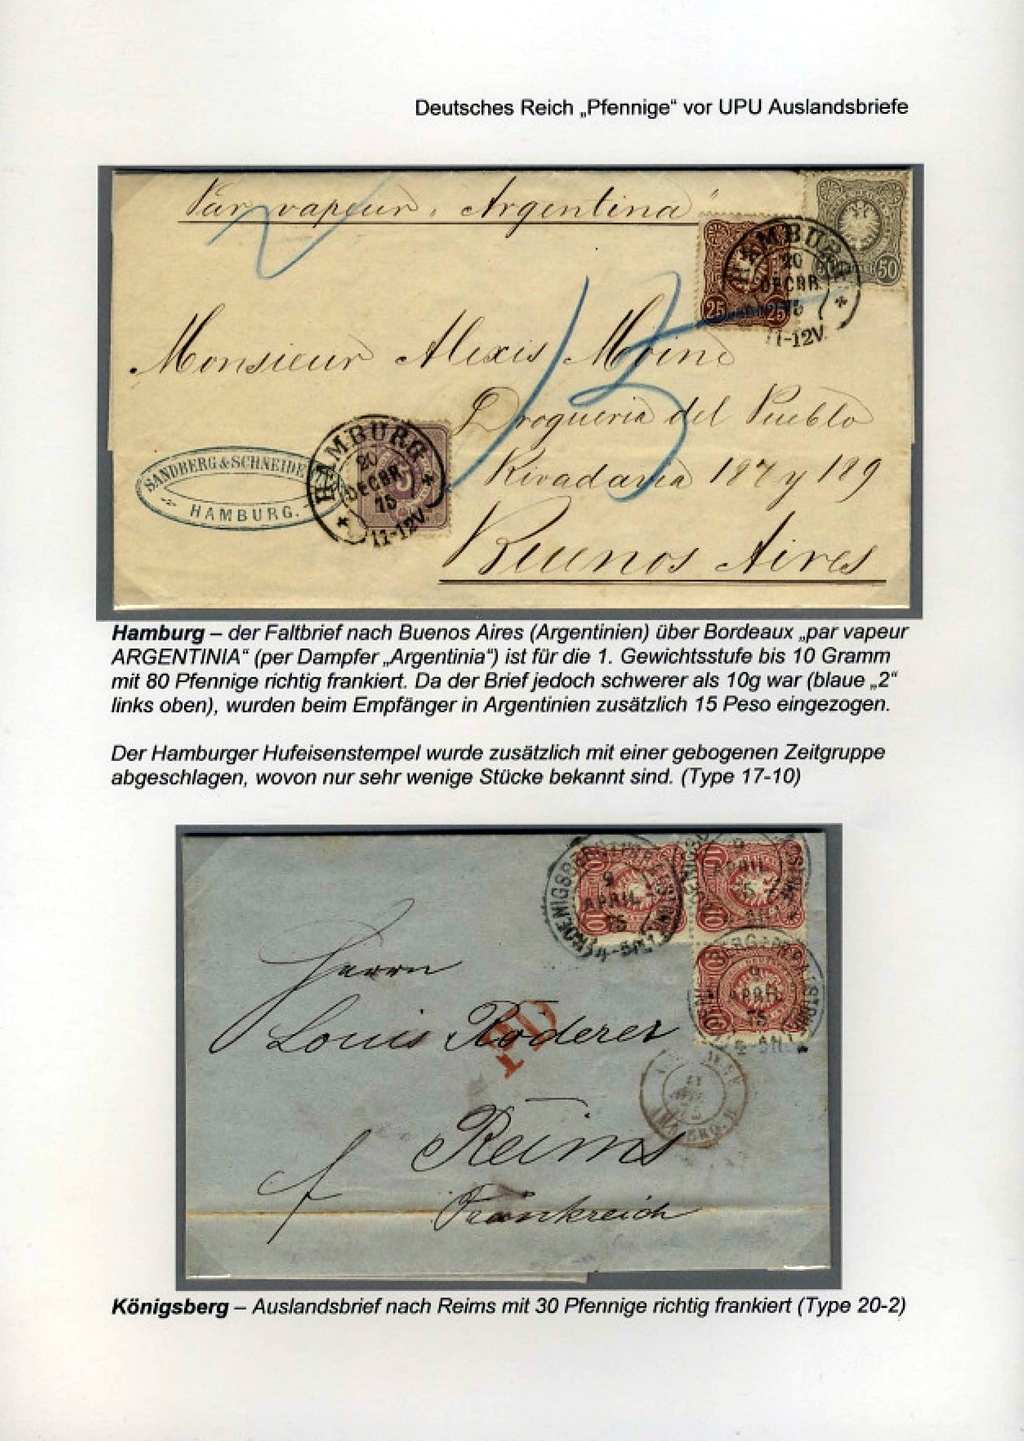 Deutsches Reich „Pfennige“ vor UPU Auslandsbriefe
Par vapeur „Argentina“
50
HAMBURG
20
DECBR.
75
11-12V.
25 25
Monsieur Alexis Moine
15
Drogueria del Pueblo
Rivadavia 187 y 189
Buenos Aires
SANDBERG & SCHNEIDE
HAMBURG.
HAMBURG
20
DECBR.
75
11-12V.
Hamburg – der Faltbrief nach Buenos Aires (Argentinien) über Bordeaux „par vapeur
ARGENTINIA“ (per Dampfer „Argentinia“) ist für die 1. Gewichtsstufe bis 10 Gramm
mit 80 Pfennige richtig frankiert. Da der Brief jedoch schwerer als 10g war (blaue „2“
links oben), wurden beim Empfänger in Argentinien zusätzlich 15 Peso eingezogen.
Der Hamburger Hufeisenstempel wurde zusätzlich mit einer gebogenen Zeitgruppe
abgeschlagen, wovon nur sehr wenige Stücke bekannt sind. (Type 17-10)
9
APRIL
75
10
9
APRIL
75
10
9
APRIL
75
Herrn
Louis Roderer
PD
Reims
Frankreich
Königsberg – Auslandsbrief nach Reims mit 30 Pfennige richtig frankiert (Type 20-2)